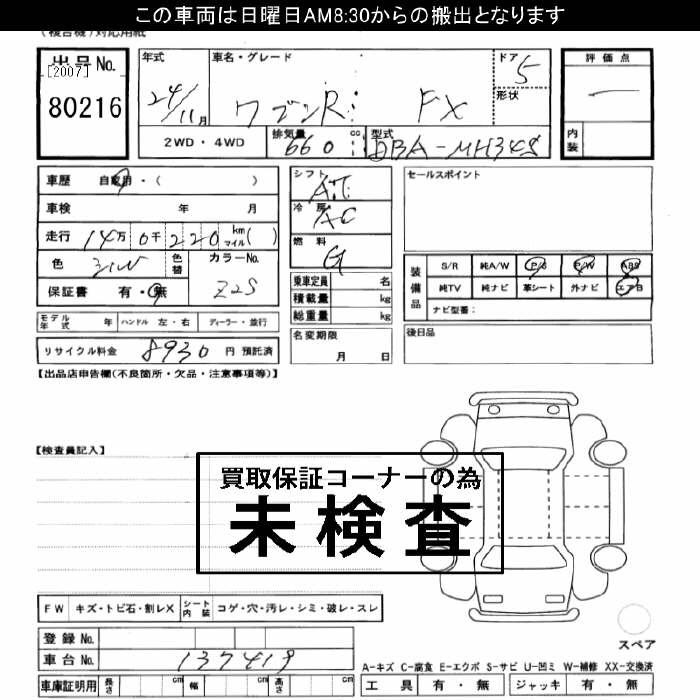 この車両は日曜日AM8:30からの搬出となります
(複合機)対応用紙
出品No.
[2007]
80216
年式
24/11月
車名・グレード
ワゴンR FX
ドア
5
形状
評価点
内装
2WD・4WD
排気量
660
cc
型式
DBA-MH34S
車歴 自家用・( )
車検 年 月
走行 14万0千220 km マイル( )
色 シルW
色替
カラーNo.
Z2S
保証書 有・無
モデル年式 年 ハンドル 左・右 ディーラー・並行
リサイクル料金 8930円 預託済
シフト
AT
冷房
AC
燃料
G
乗車定員 名
積載量 kg
総重量 kg
名変期限
月 日
セールスポイント
装備品
S/R 純A/W P/S P/W ABS
純TV 純ナビ 革シート 外ナビ エアB
ナビ型番:
後日品
【出品店申告欄(不良箇所・欠品・注意事項等)】
【検査員記入】
買取保証コーナーの為
未検査
FW キズ・トビ石・割レX シート内装 コゲ・穴・汚レ・シミ・破レ・スレ
登録No.
車台No. 137419
車庫証明用 長さ cm 幅 cm 高さ cm
スペア
A-キズ C-腐食 E-エクボ S-サビ U-凹ミ W-補修 XX-交換済
工具 有・無 ジャッキ 有・無